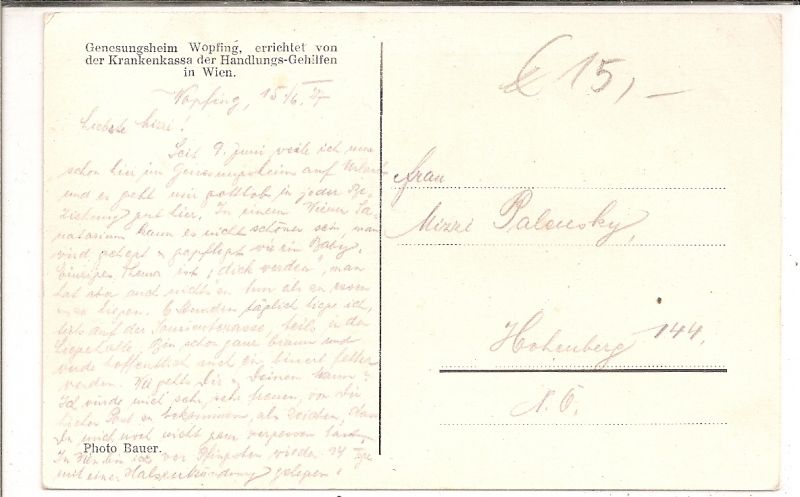 Genesungsheim Wopfing, errichtet von
der Krankenkassa der Handlungs-Gehilfen
in Wien.
€ 15,—
Wopfing, 15/6. 27
Liebste Mizzi!
Seit 9. Juni weile ich nun
schon hier im Genesungsheim auf Urlaub
und es geht mir gottlob in jeder Be-
ziehung gut hier. In einem Wiener Sa-
natorium kann es nicht schöner sein, man
wird gehegt u gepflegt wie ein Baby.
Einziges Thema ist „dick werden", man
hat aber auch nichts zu tun als zu essen
u zu liegen. 6 Stunden täglich liege ich,
teils auf der Sonnenterrasse, teils in der
Liegehalle. Bin schon ganz braun und
werde hoffentlich auch ein bisserl fetter
werden. Wie geht's Dir u Deinem Mann?
Ich würde mich sehr, sehr freuen, von Dir
Post zu bekommen, als Zeichen, dass
Du mich noch nicht ganz vergessen hast.
In Wien bin ich vor Pfingsten wieder 14 Tage
mit einer Halsentzündung gelegen!
Photo Bauer.
Frau
Mizzi Palensky,
Hohenberg 144.
N. Ö.